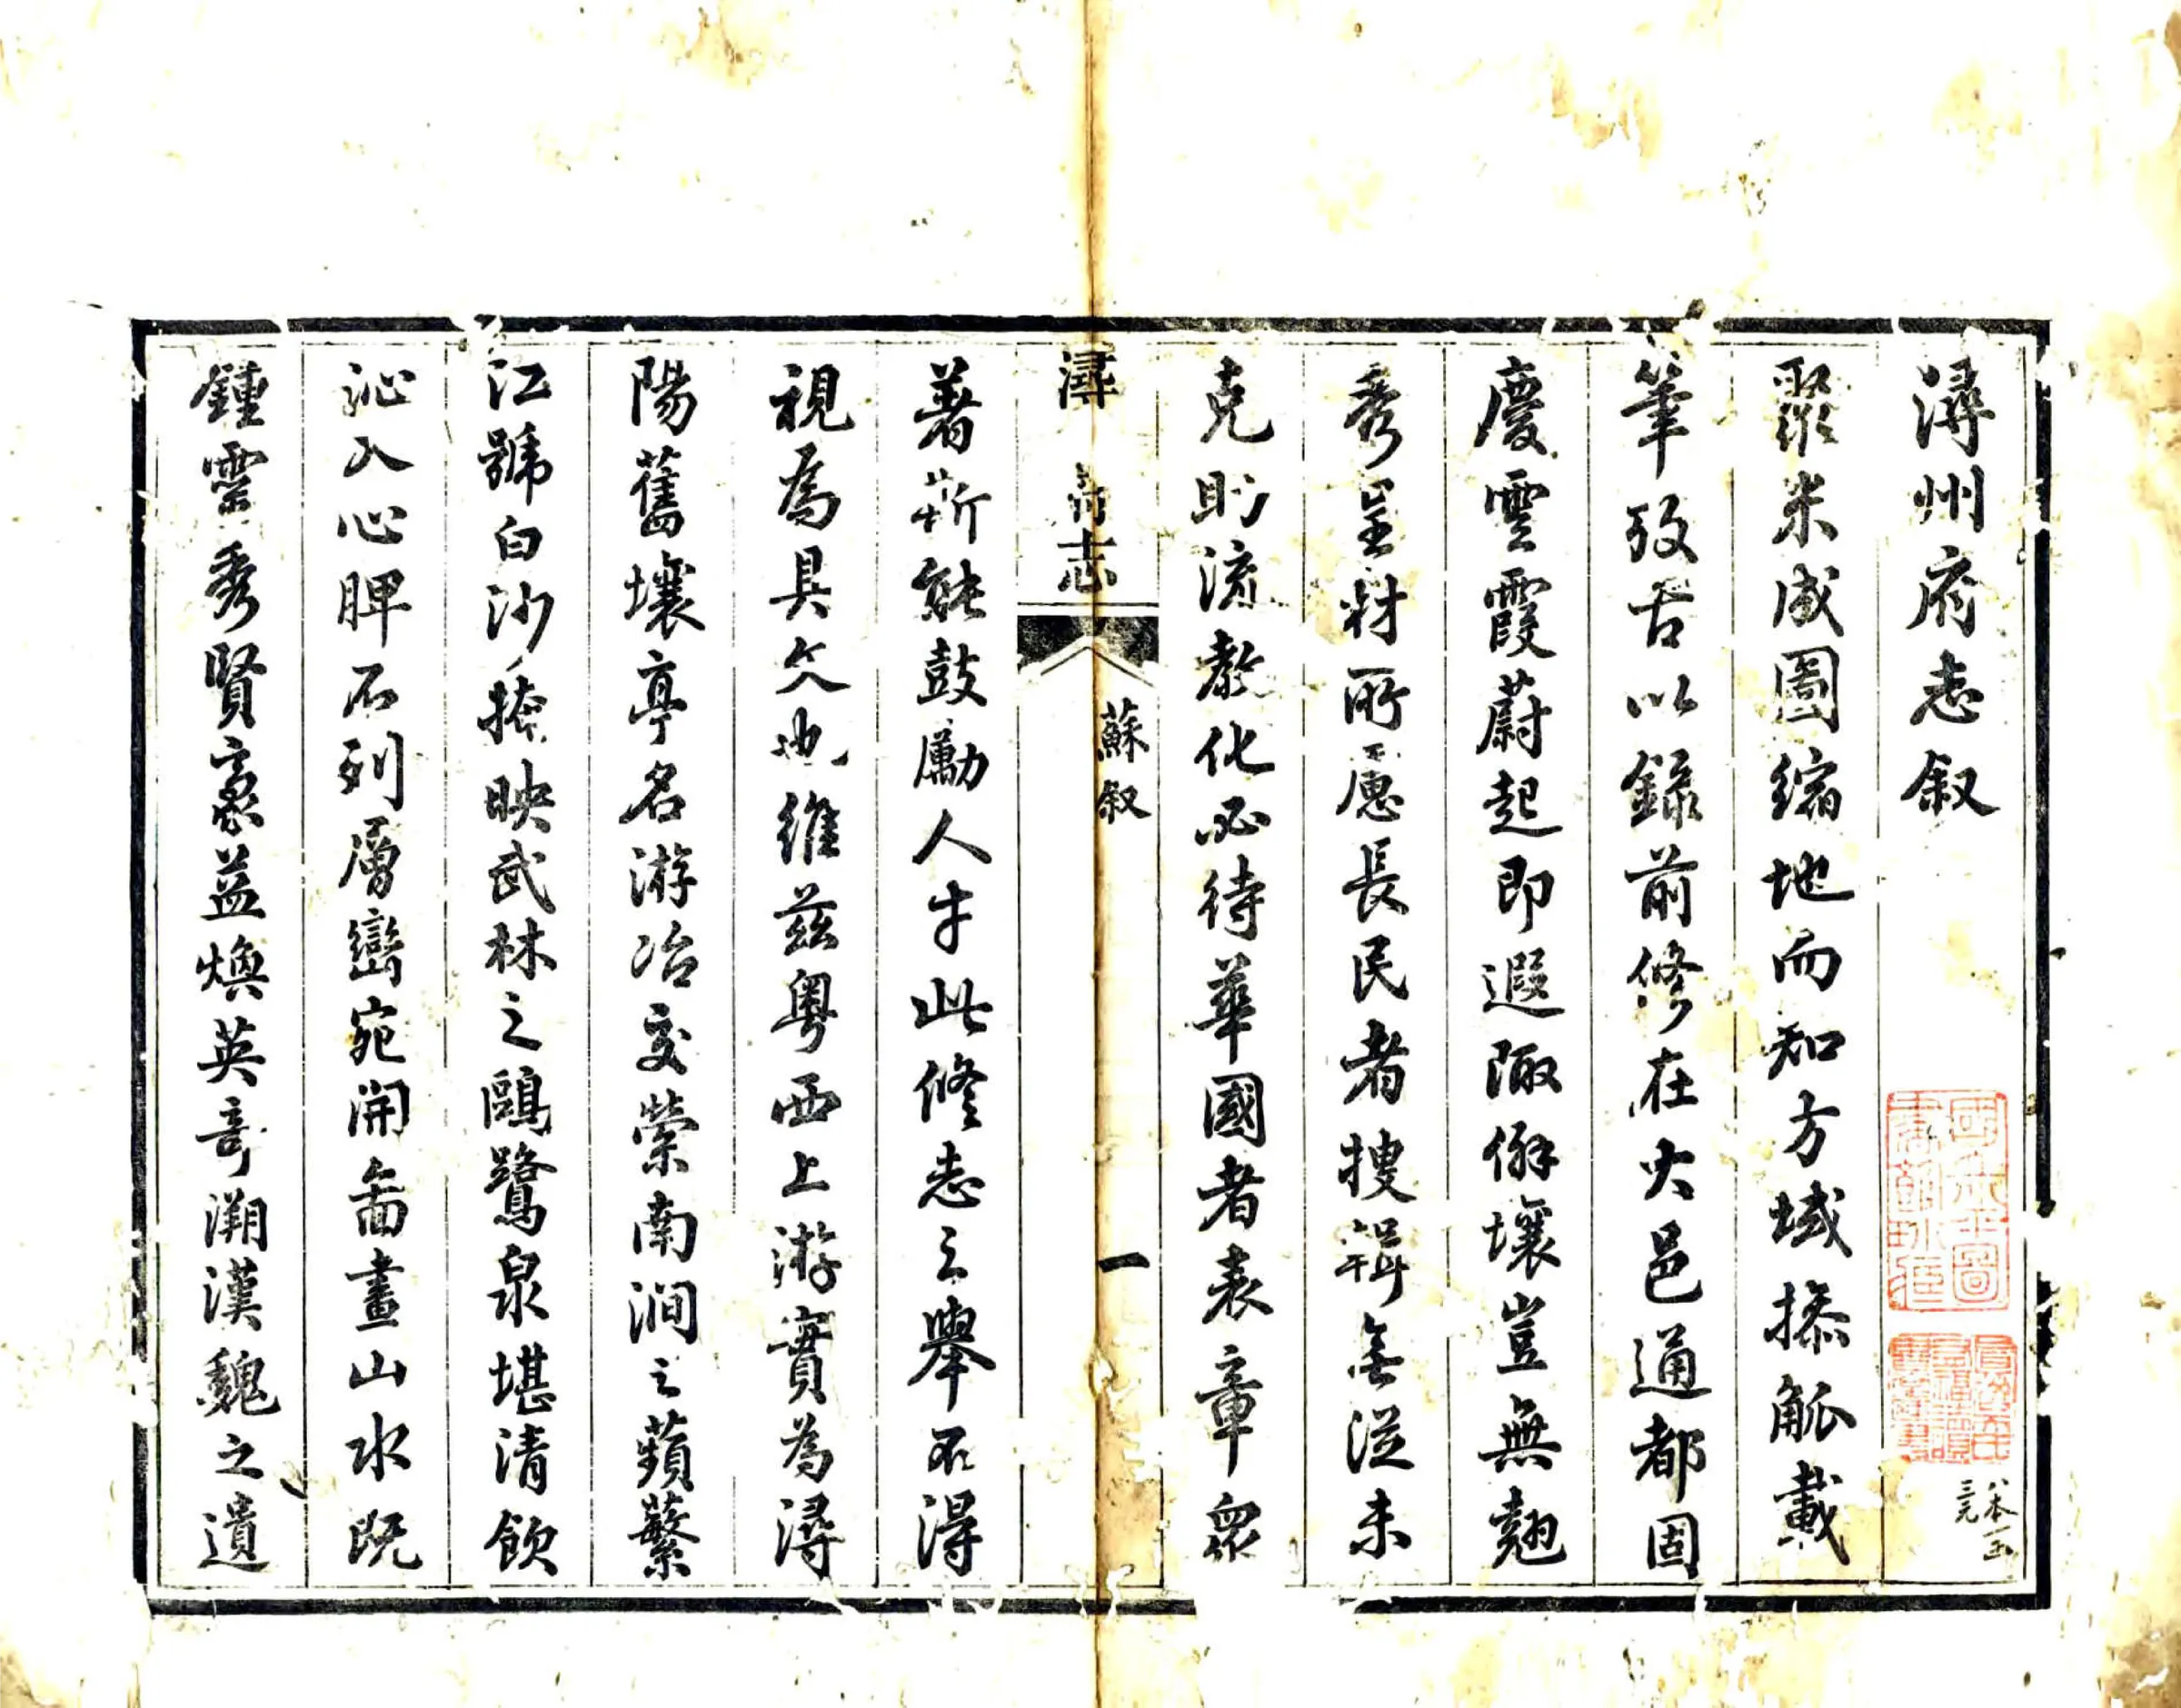 潯州府志叙
聚米成圖縮地而知方域搽觚載
筆攷古以録前修在大邑通都固
慶雲霞蔚起即遐陬僻壤豈無翹
秀呈材所慮長民者搜輯無從未
克助流教化必待華國者表章衆
潯 府志
蘇叙
一
著嶄能鼓勵人才此修志之舉不得
視為具文也維兹粤西上游實為潯
陽舊壤亭名游冶交縈南澗之蘋蘩
江號白沙掩映武林之鷗鷺泉堪清飲
沁入心脾石列層巒宛開畨畫山水既
鍾靈秀賢豪益煥英奇溯漢魏之遺